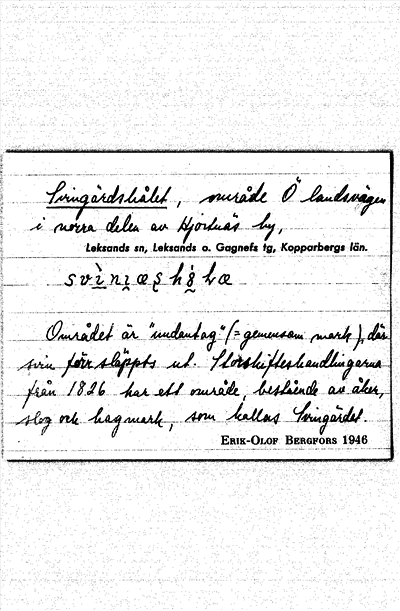 Svingärdshålet, område Ö landsvägen
i norra delen av Hjortnäs by,
Leksands sn, Leksands o. Gagnefs tg, Kopparbergs län.
Området är "undantag" (= gemensam mark), där
svin förr släppts ut. Storskifteshandlingarna
från 1826 har ett område, bestående av åker,
slog och hagmark, som kallas Svingärdet.
ERIK-OLOF BERGFORS 1946